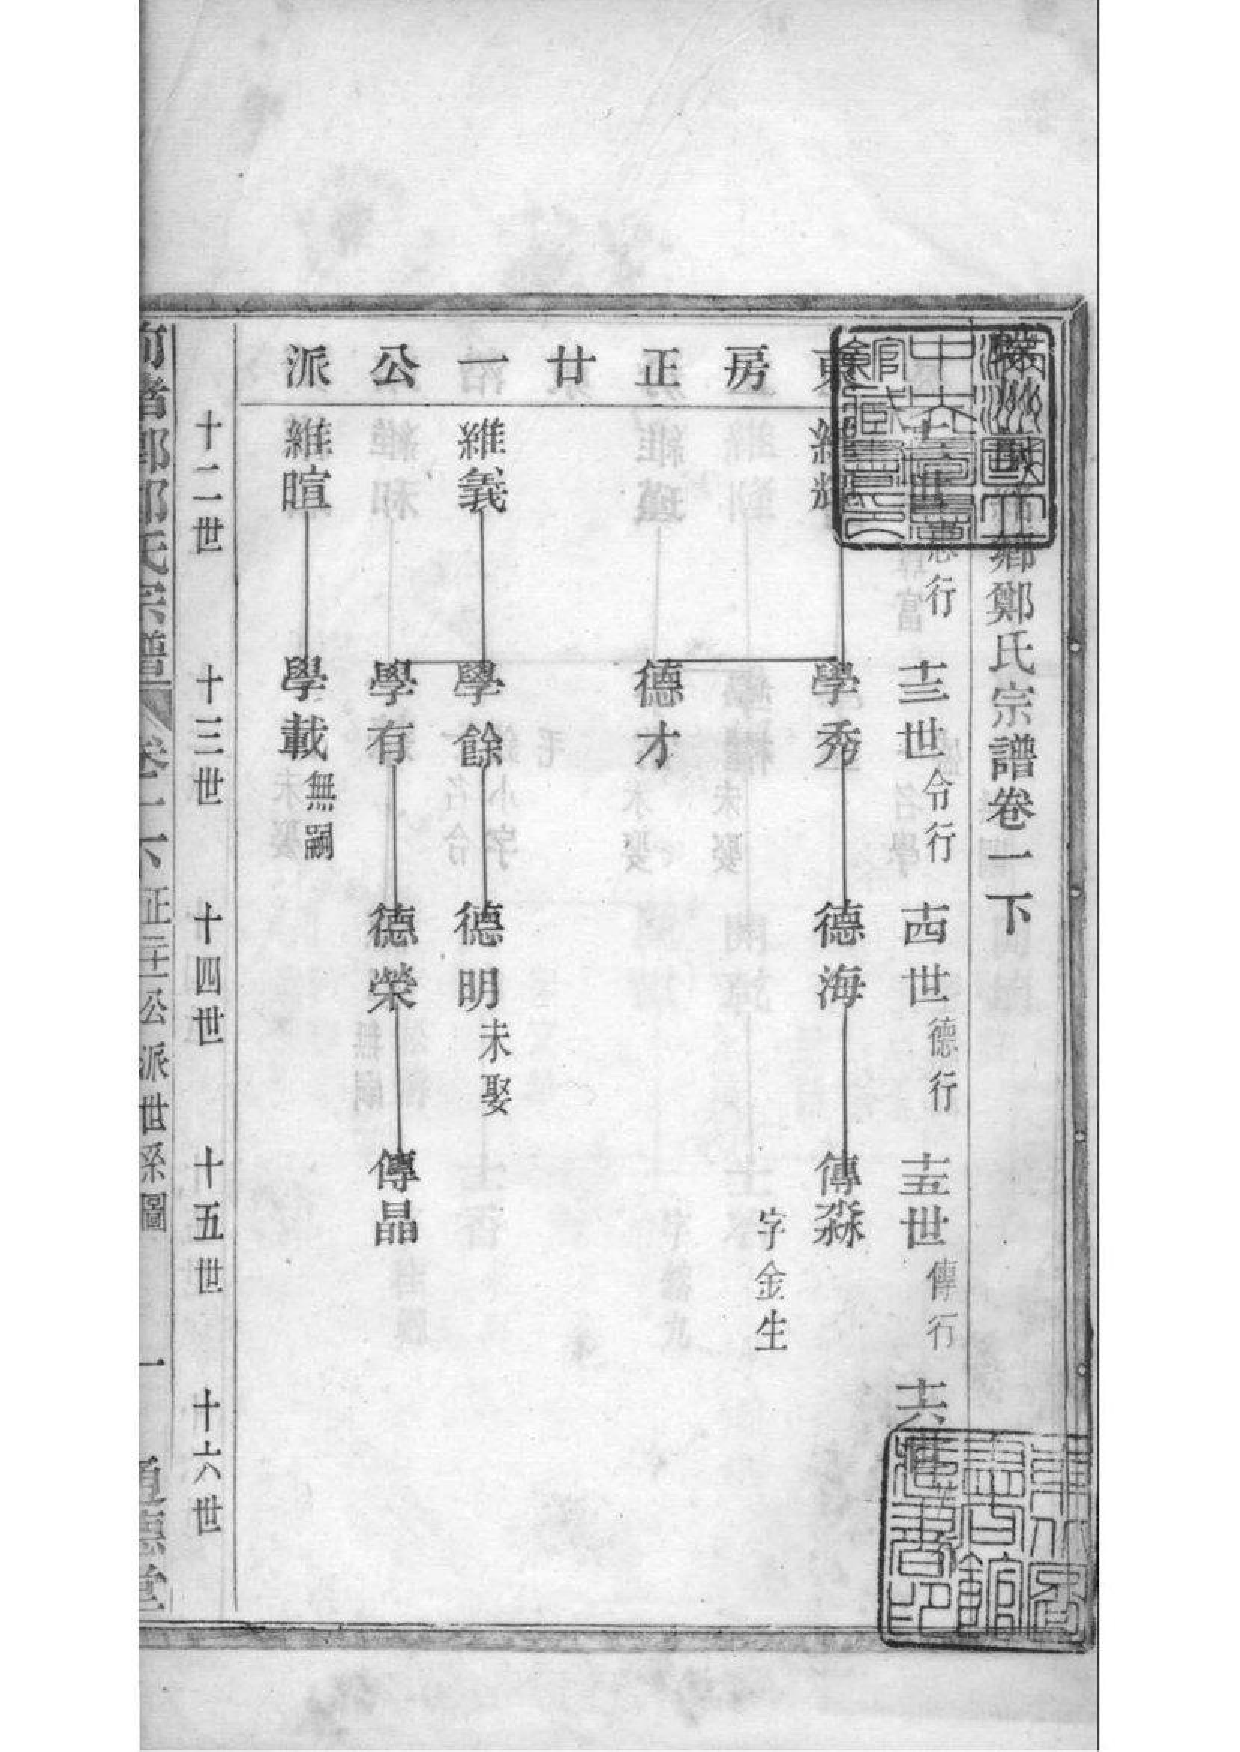 鄉鄭氏宗譜卷一下
世 行
十三世 令行
十四世 德行
十五世 傳行
十六世
東房正廿一公派
維
學秀
德海
傳淼
字金生
德才
維義
學餘
德明
未娶
學有
德榮
傳晶
維暄
學載
無嗣
十二世
十三世
十四世
十五世
十六世
氏宗譜
卷一下
正廿一公派世系圖
一
道德堂